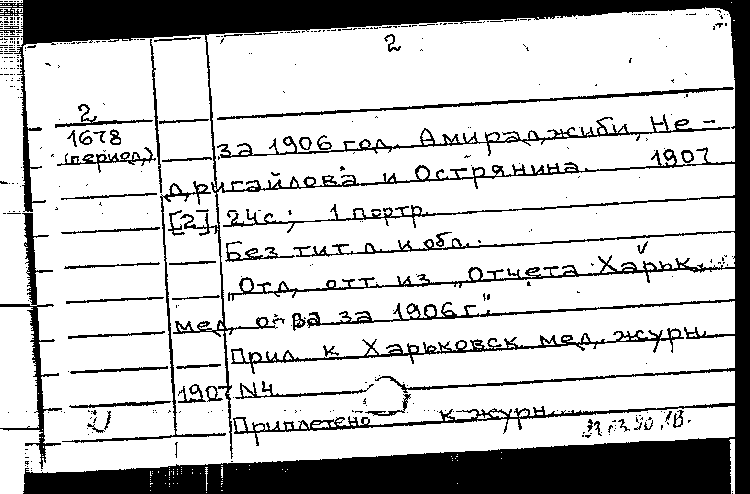 2
2
1678
(период.)
за 1906 год. Амираджиби, Не-
дригайлова и Острянина. 1907
[2], 24с.; 1 портр.
Без тит. л. и обл.
„Отд. отт. из „Отчета Харьк.
мед. о-ва за 1906 г."
Прил. к Харьковск. мед. журн.
1907 N4.
Приплетено к журн.